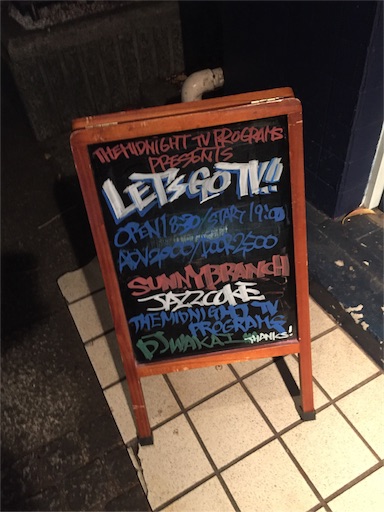 THE MIDNIGHT TV PROGRAMS
PRESENTS
LET'S GO TV!!
OPEN 18:30/START 19:00
ADV 2000/DOOR 2500
SUNNY BRANCH
JAZZCORE
THE MIDNIGHT TV
PROGRAMS
DJ WAKAI
THANKS!